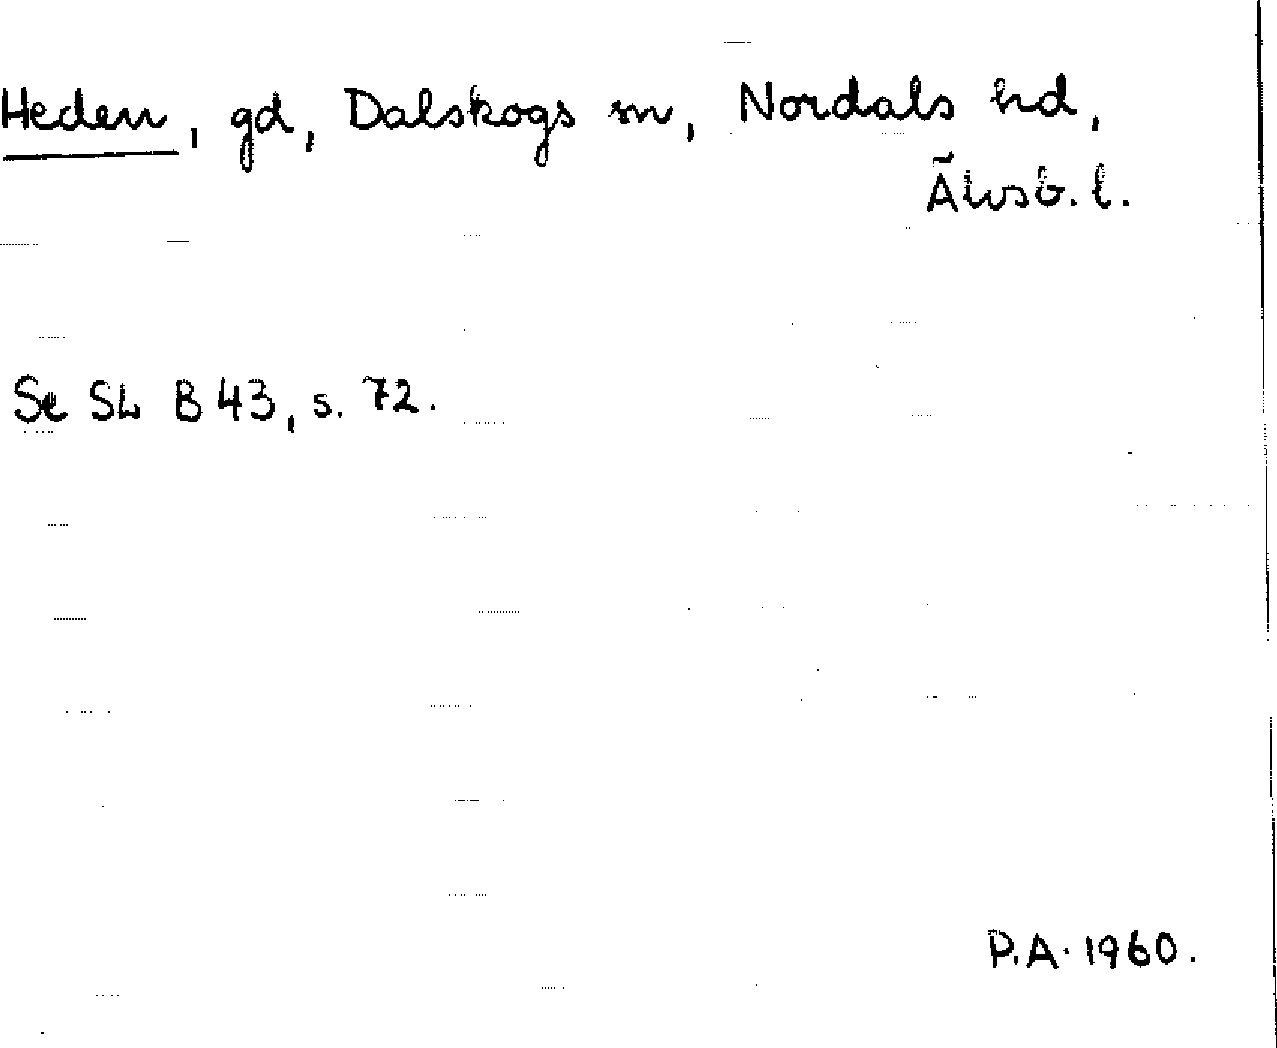 Heden, gd, Dalskogs sn, Nordals hd,
Älvsb. l.
Se SL B 43, s. 72.
P.A. 1960.